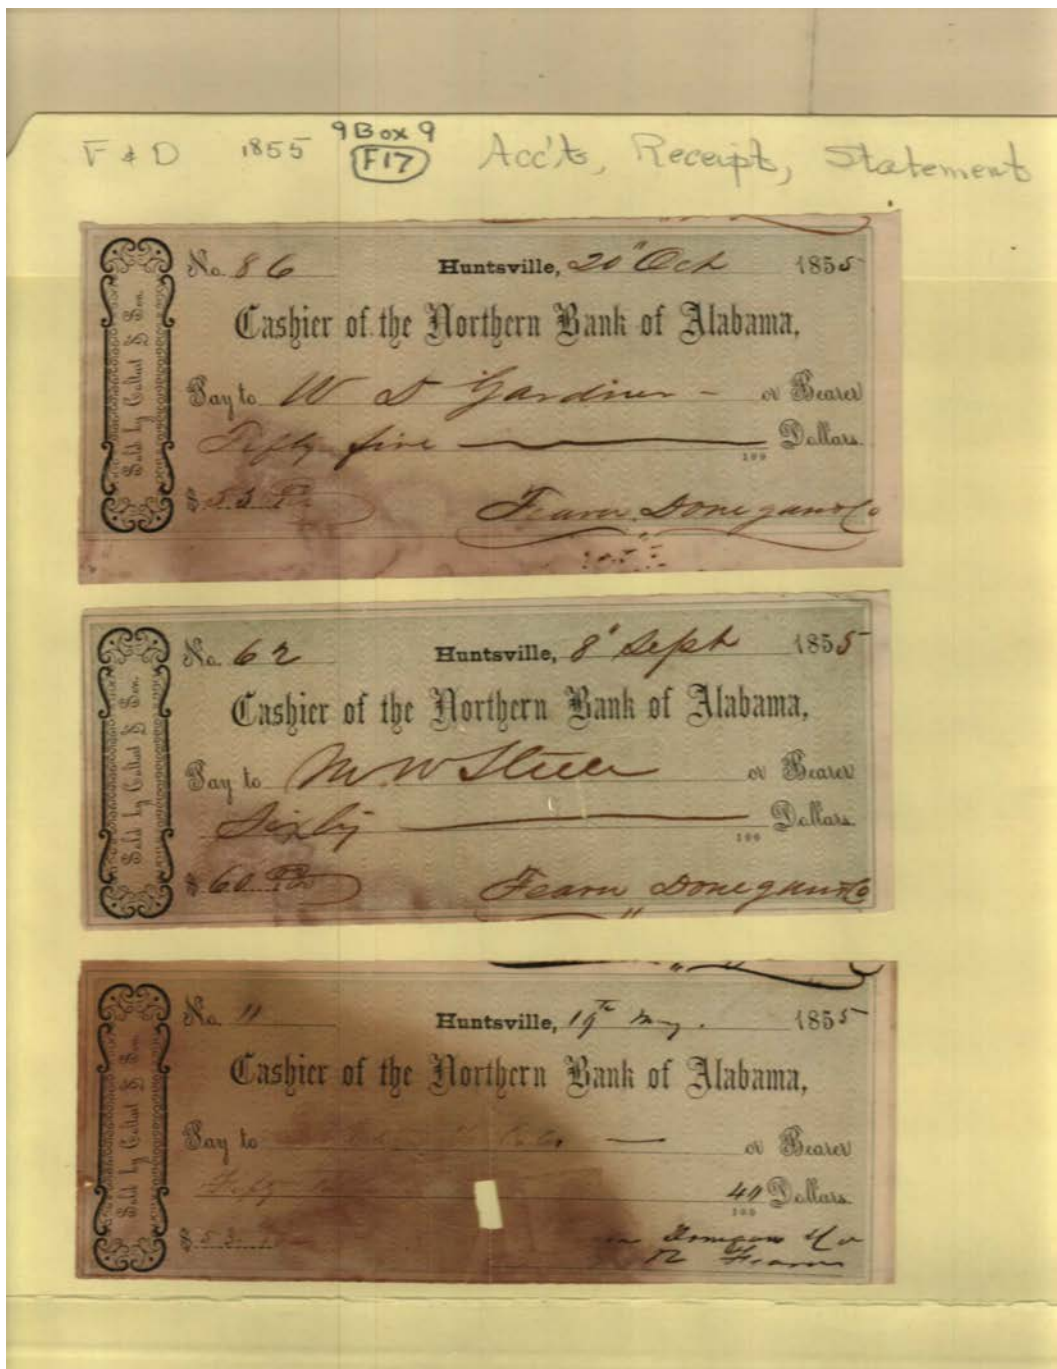 9 Box 9
F & D 1855 F17 Acc'ts, Receipt, Statement
No. 86 Huntsville, 20" Oct 1855
Cashier of the Northern Bank of Alabama,
Pay to W D Gardiner - or Bearer
Fifty five Dollars.
100
$
Fearn Donegan & Co
No. 62 Huntsville, 8" Sept 1855
Cashier of the Northern Bank of Alabama,
Pay to M W Steele or Bearer
Sixty Dollars.
100
$ 60
Fearn Donegan & Co
No. 11 Huntsville, 19th May. 1855
Cashier of the Northern Bank of Alabama,
Pay to or Bearer
Fifty 40 Dollars.
100
$ 53
Donegan & Co
Fearn